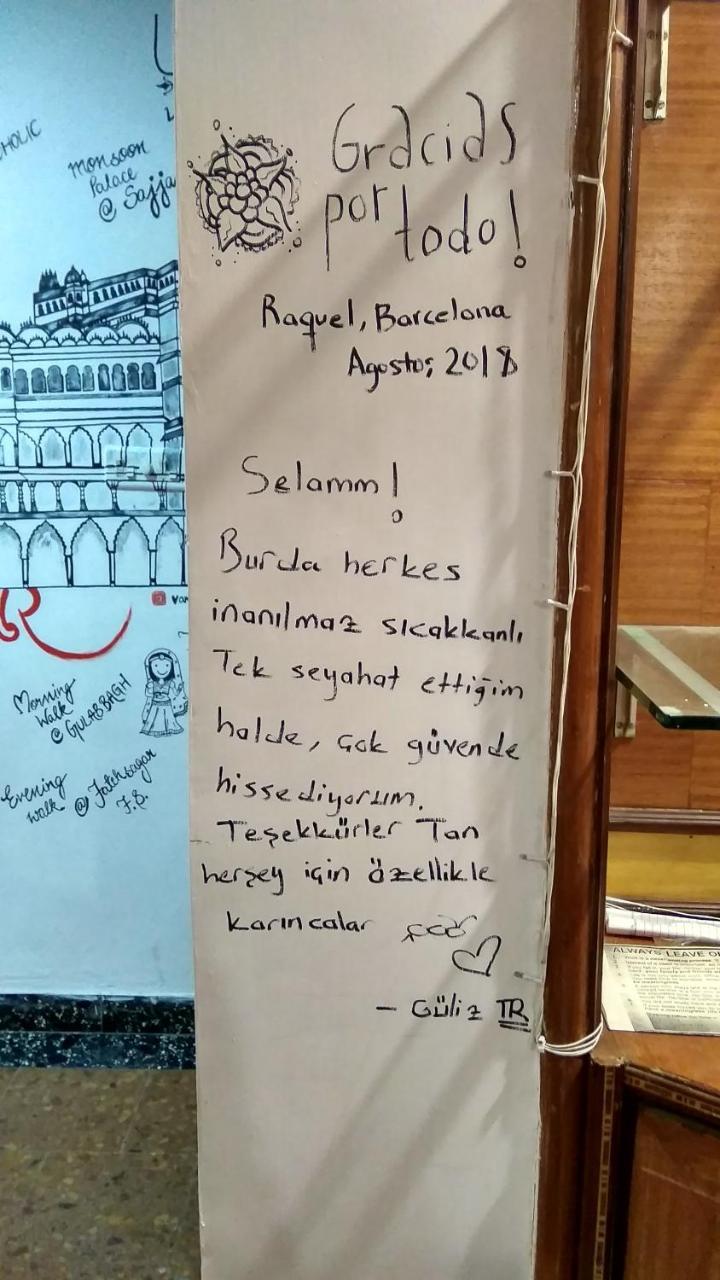 Monsoon
Palace
@ Sajja
Gracias
por
todo!
Raquel, Barcelona
Agosto; 2018
Selamm!
Burda herkes
inanılmaz sıcakkanlı
Tek seyahat ettiğim
halde, çok güvende
hissediyorum.
Teşekkürler Tan
herşey için özellikle
karıncalar
- Güliz TR
Morning
Walk
@ GULABBAGH
Evening
walk @ Fatehsagar
F.S.
ALWAYS LEAVE